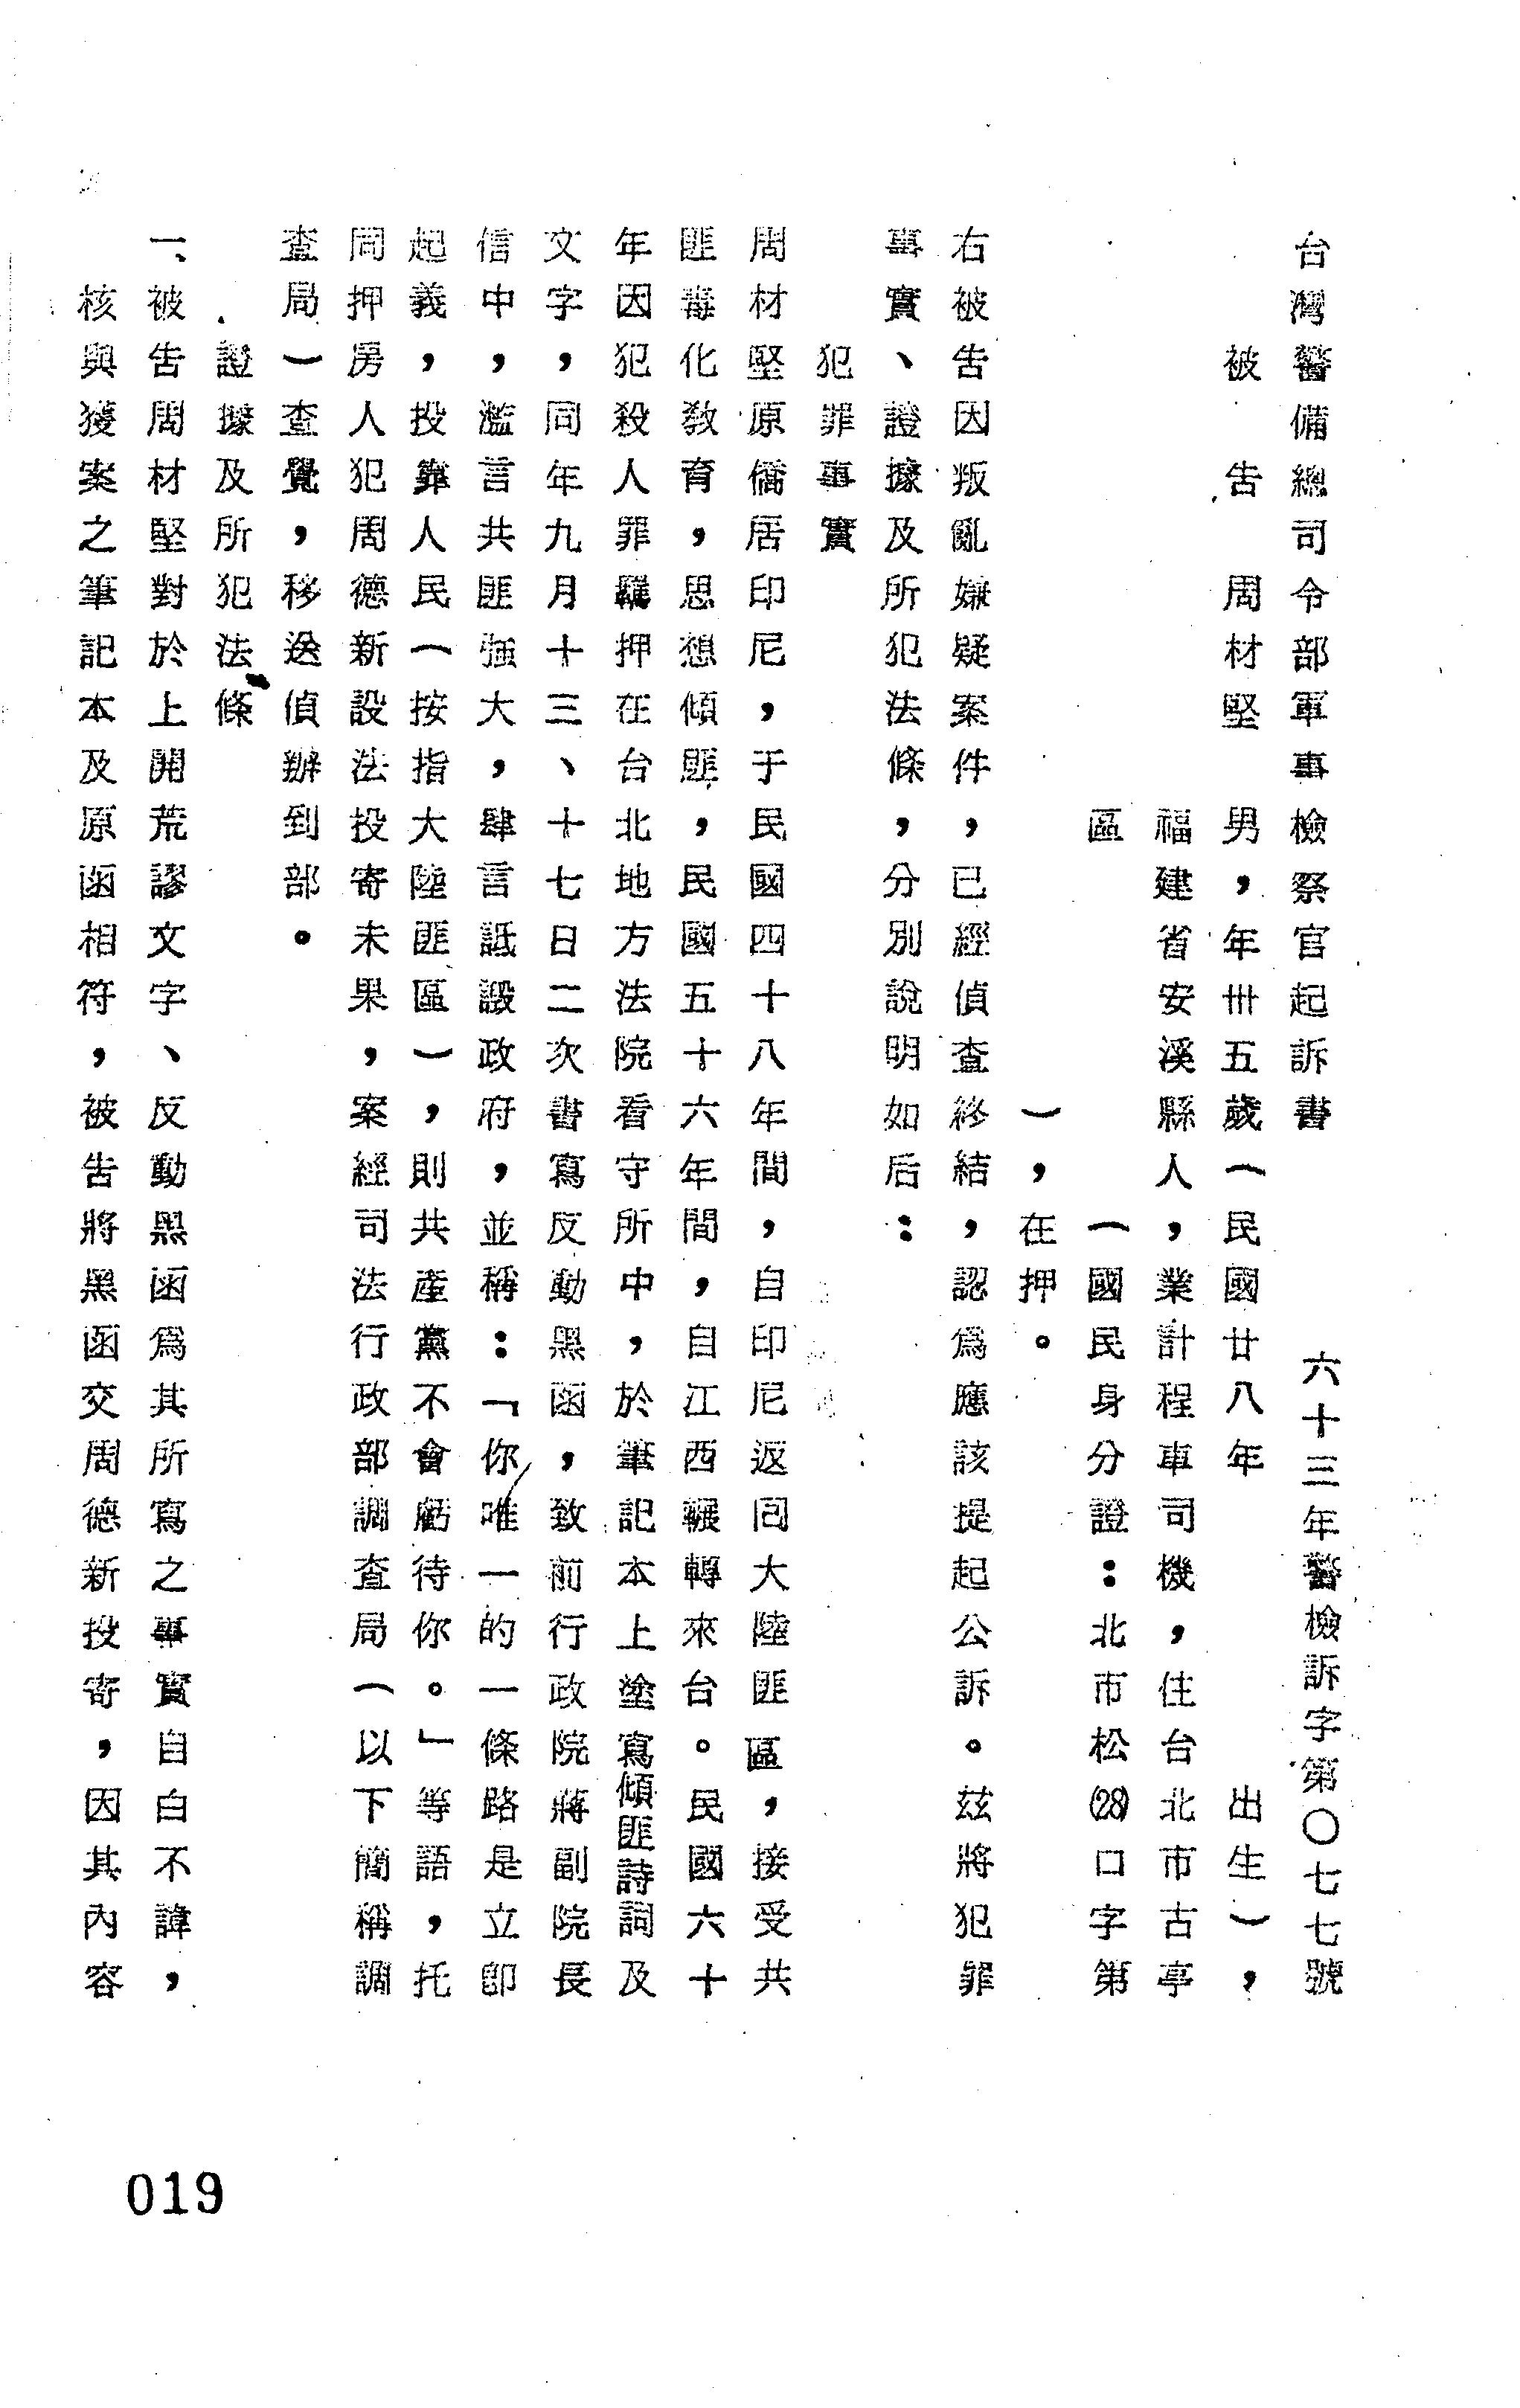 台灣警備總司令部軍事檢察官起訴書
六十三年警檢訴字第〇七七號
被告 周材堅 男，年卅五歲（民國廿八年 出生），
福建省安溪縣人，業計程車司機，住台北市古亭
區 （國民身分證：北市松(28)口字第
），在押。
右被告因叛亂嫌疑案件，已經偵查終結，認為應該提起公訴。茲將犯罪
事實、證據及所犯法條，分別說明如后：
犯罪事實
周材堅原僑居印尼，于民國四十八年間，自印尼返回大陸匪區，接受共
匪毒化教育，思想傾匪，民國五十六年間，自江西輾轉來台。民國六十
年因犯殺人罪羈押在台北地方法院看守所中，於筆記本上塗寫傾匪詩詞及
文字，同年九月十三、十七日二次書寫反動黑函，致前行政院蔣副院長
信中，濫言共匪強大，肆言詆譭政府，並稱：「你唯一的一條路是立即
起義，投靠人民（按指大陸匪區），則共產黨不會虧待你。」等語，托
同押房人犯周德新設法投寄未果，案經司法行政部調查局（以下簡稱調
查局）查覺，移送偵辦到部。
證據及所犯法條
一、被告周材堅對於上開荒謬文字、反動黑函為其所寫之事實自白不諱，
核與獲案之筆記本及原函相符，被告將黑函交周德新投寄，因其內容
019